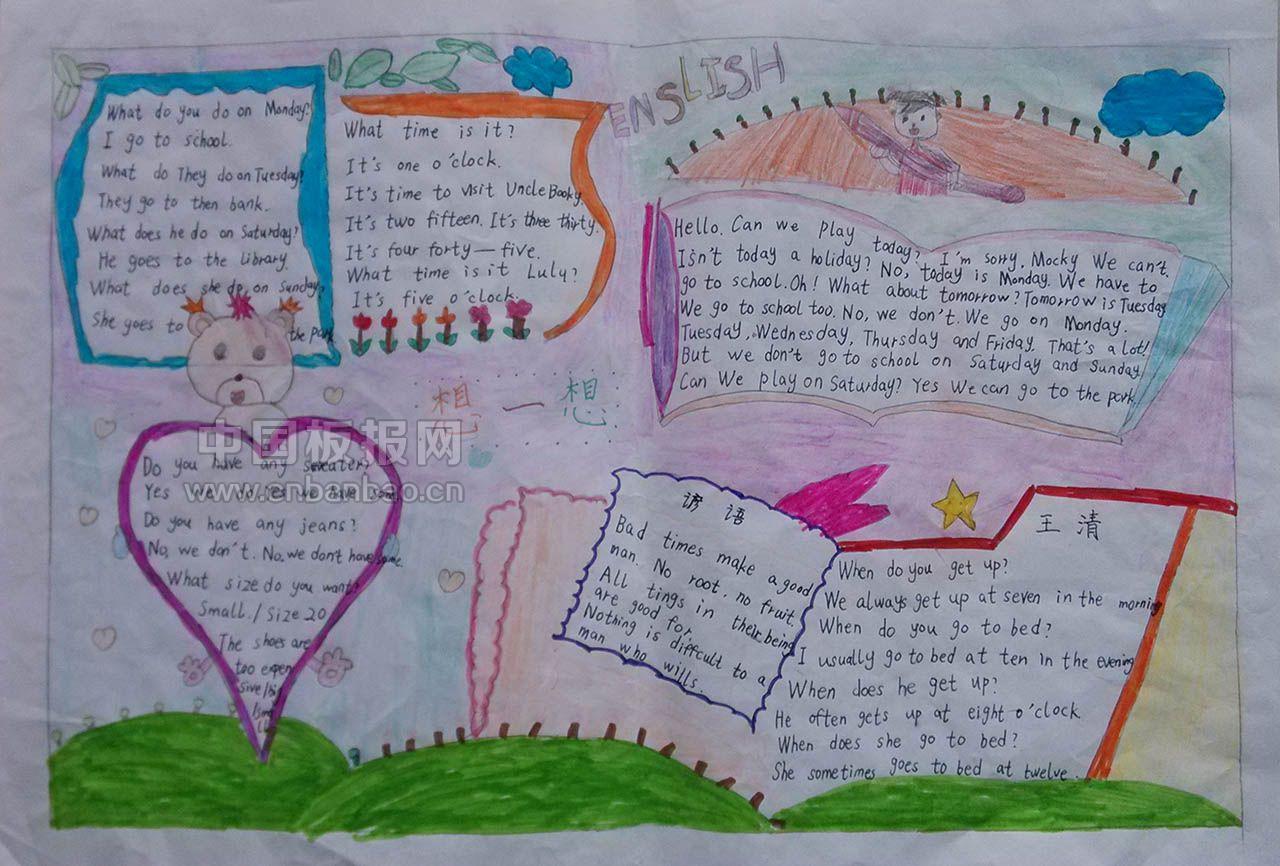 ENSLISH
What do you do on Monday?
I go to school.
What do They do on Tuesday?
They go to then bank.
What does he do on Saturday?
He goes to the library.
What does she do on Sunday?
She goes to the park
What time is it?
It's one o'clock.
It's time to visit Uncle Booky
It's two fifteen. It's three thirty.
It's four forty—five.
What time is it Luly?
It's five o'clock.
Hello. Can we play today? I'm sorry, Mocky We can't.
Isn't today a holiday? No, today is Monday. We have to
go to school. Oh! What about tomorrow? Tomorrow is Tuesday
We go to school too. No, we don't. We go on Monday.
Tuesday, Wednesday, Thursday and Friday. That's a lot!
But we don't go to school on Saturday and Sunday.
Can We play on Saturday? Yes We can go to the park.
想一想
中国板报网
www.cnbanbao.cn
Do you have any sweater?
Yes we do, yes we have some.
Do you have any jeans?
No, we don't. No, we dont have some.
What size do you want?
Small. / Size 20
The shoes are
too expen
sive/
谚语
Bad times make a good
man. No root, no fruit.
All tings in their being
are good for.
Nothing is diffcult to a
man who wills.
王清
When do you get up?
We always get up at seven in the morning
When do you go to bed?
I usually go to bed at ten in the evening
When does he get up?
He often gets up at eight o'clock.
When does she go to bed?
She sometimes goes to bed at twelve.